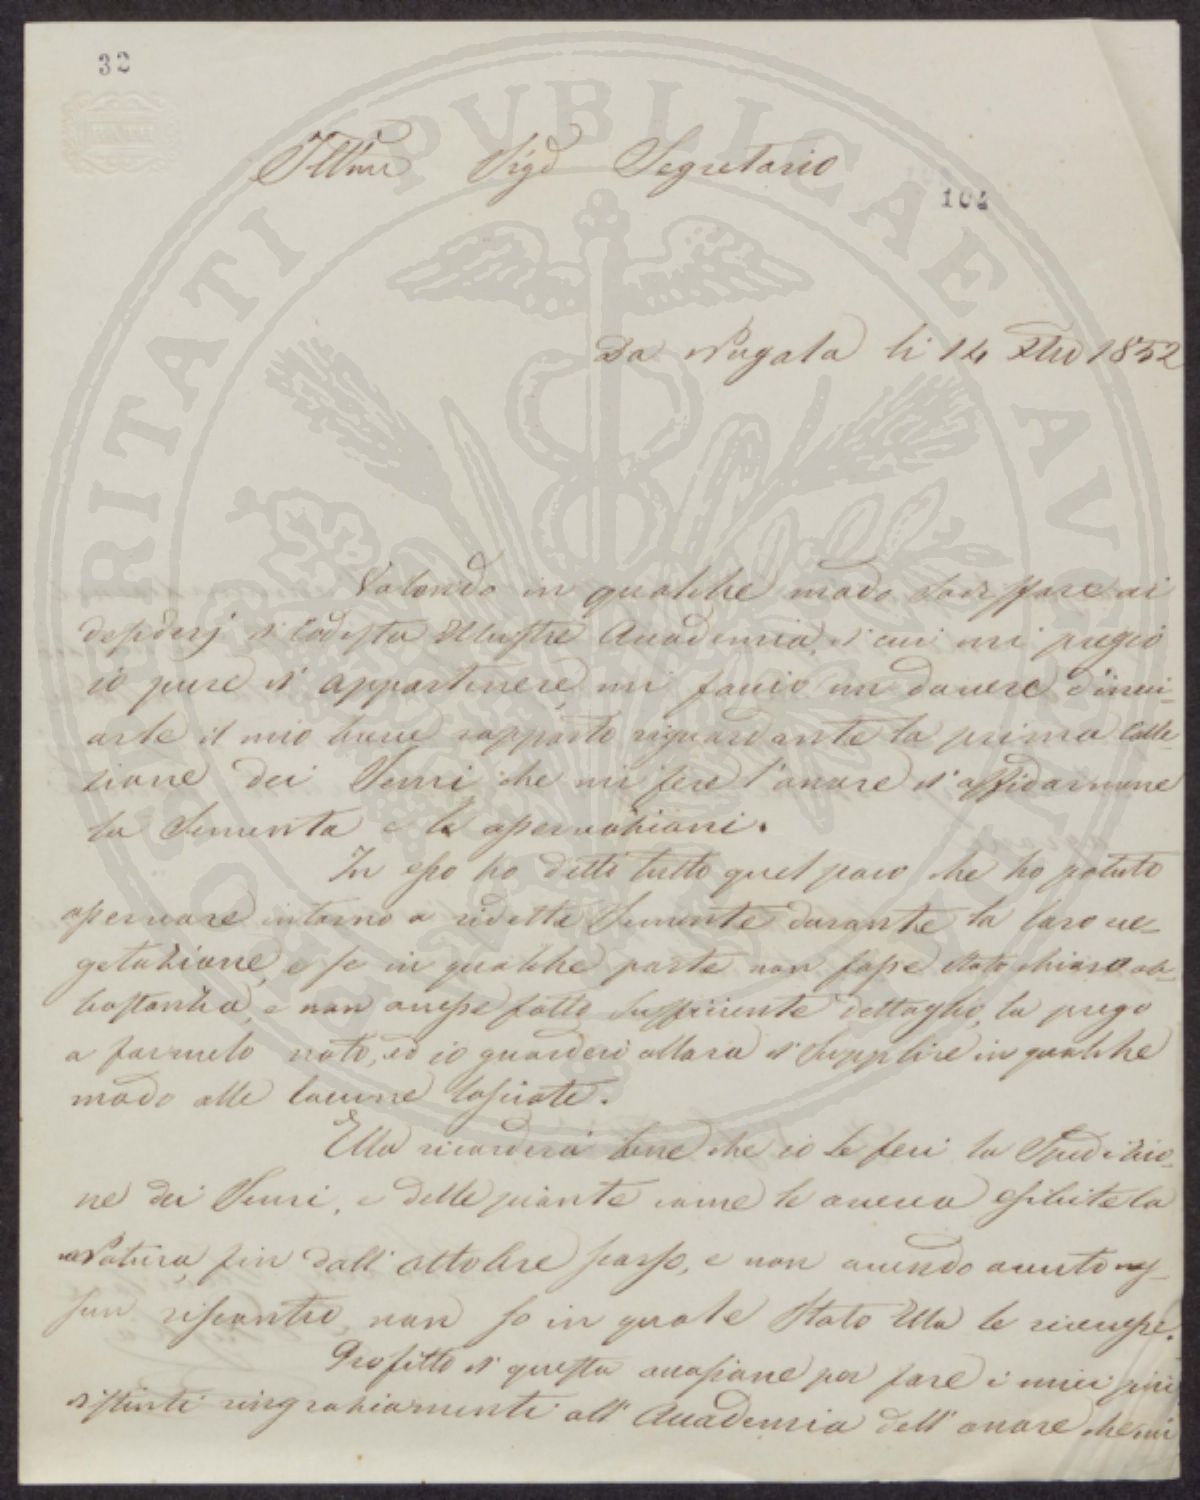 32
Illmo Sigr Segretario
104
Da Nugola li 14 Xbre 1852
Volendo in qualche modo sadisffare ai
desiderj di Codesta Illustre Accademia, di cui mi pregio
io pure di appartenere, mi faccio un dovere d'invi-
arle il mio breve rapporto riguardante la prima Colle-
zione dei Semi che mi fece l'onore di affidarmene
la Sementa e le osservazioni.
In esso ho detto tutto quel poco che ho potuto
osservare intorno a ridette Semente durante la loro ve-
getazione, e se in qualche parte non fosse stato chiaro ab-
bastanza, e non avesse fatto sufficiente dettaglio, la prego
a farmelo noto, ed io guarderò allora di supplire in qualche
modo alle lacune lasciate.
Ella ricorderà bene che io le feci la Spedizio-
ne dei Semi, e delle piante come le aveva esibite la
Natura, fin dall'ottobre scorso, e non avendo avuto nes-
sun riscontro, non so in quale Stato Ella le ricevesse.
Profitto di questa occasione per fare i miei più
distinti ringraziamenti all'Accademia dell'onore che mi
PVBLICAE